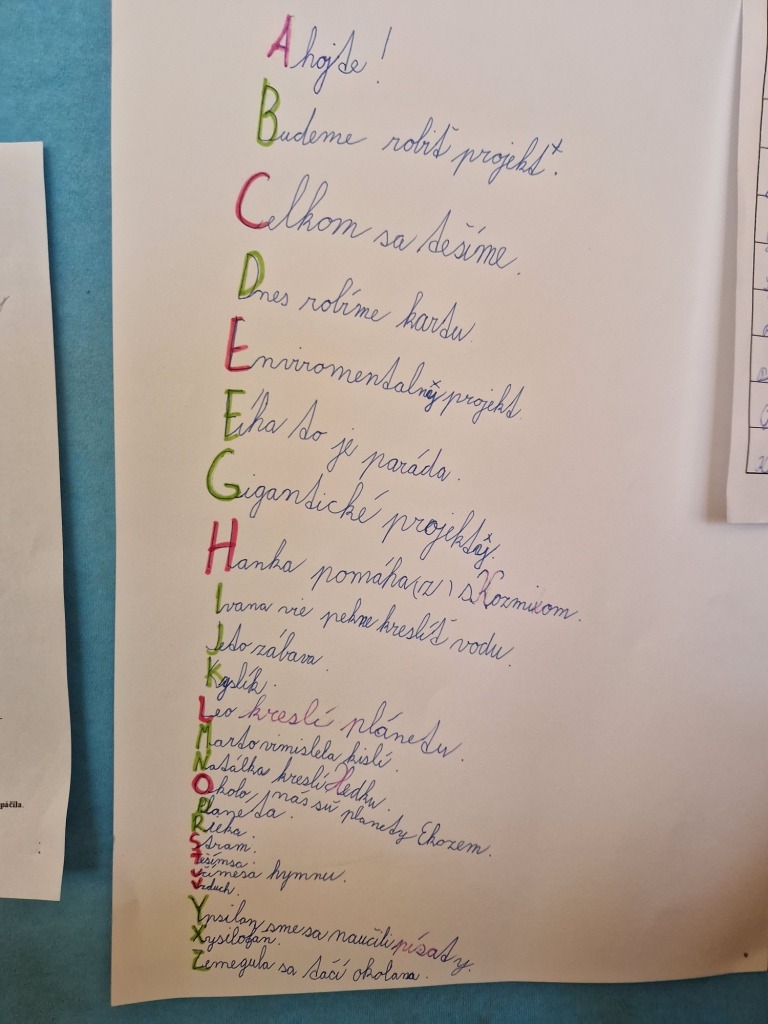 Ahojte!
Budeme robiť projekt.
Celkom sa tešíme.
Dnes robíme kartu.
Enviromentalnéj projekt.
Eíha to je paráda.
Gigantické projekty.
Hanka pomáha(z) s Kozmixom.
Ivana vie pekne kresliť vodu.
Jeto zábava.
Kyslík.
Leo kreslí plánetu.
Marto vimislela kislí.
Natálka kreslí Hedku.
Okolo nás sú planety Ekozem.
Planeta.
Rieka.
Stram.
Tešímsa.
Učímesa hymnu.
Vzduch.
Ypsilon sme sa naučili písaty.
Xysilofan.
Zemegula sa točí okolana.
páčila.